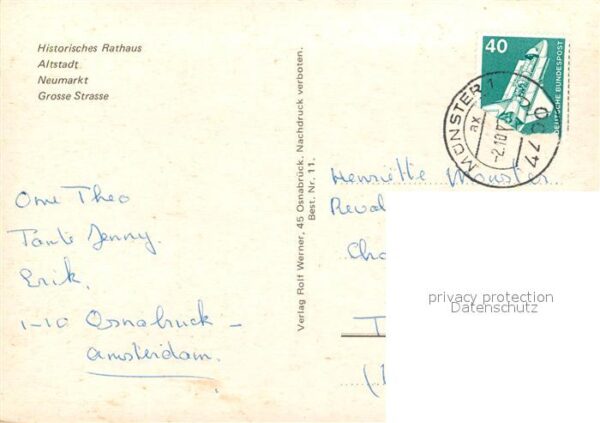 Historisches Rathaus
Altstadt
Neumarkt
Grosse Strasse
Ome Theo
Tante Jenny.
Erik.
1-10 Osnabruck -
Amsterdam.
Verlag Rolf Werner, 45 Osnabrück. Nachdruck verboten.
Best. Nr. 11.
40
DEUTSCHE BUNDESPOST
MÜNSTER 1
ax
-2.10
Henriette Monster
Reval
Cha
T
(
privacy protection
Datenschutz